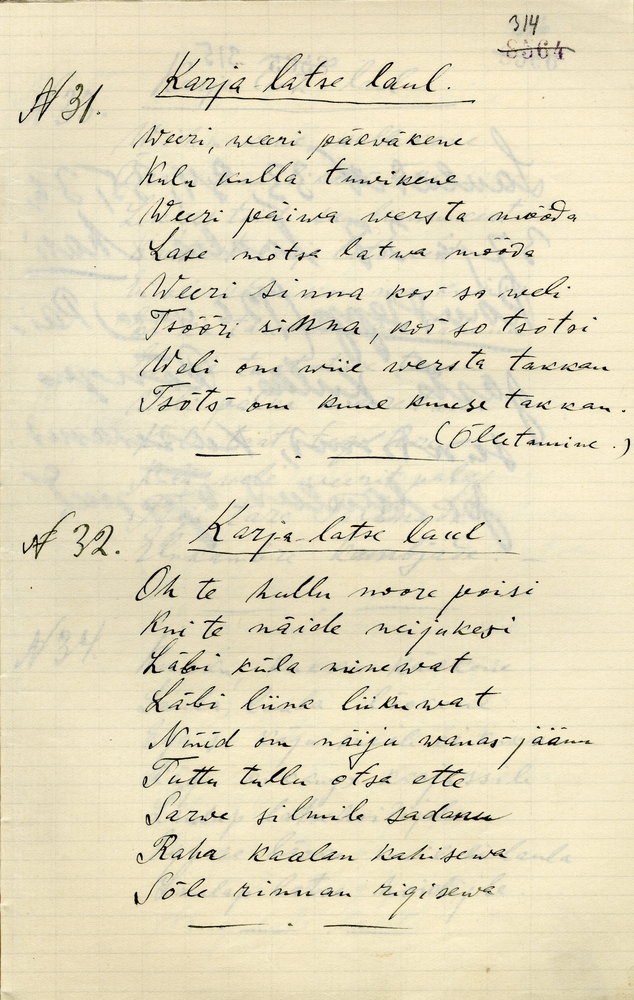 314
8564
N 31. Karja latse laul.
Weeri, weeri päeväkene
Kulu kulla tunnikene
Weeri päiwa wersta mööda
Lase mõtsa latwa mööda
Weeri sinna kos so weli
Tsõõri sinna, kos so tsõtsi
Weli om wiie wersta takkan
Tsõts om kuue kuuse takkan.
(Õlletamine.)
N 32. Karja latse laul.
Oh te hullu noore poisi
Kui te näide neijukesi
Läbi küla minewat
Läbi liina liikuwat
Nüüd om näiju wanas jäänu
Tuttu tullu otsa ette
Sarwe silmile sadanu
Raha kaalan kahisewa
Sõle rinnan rigisewa